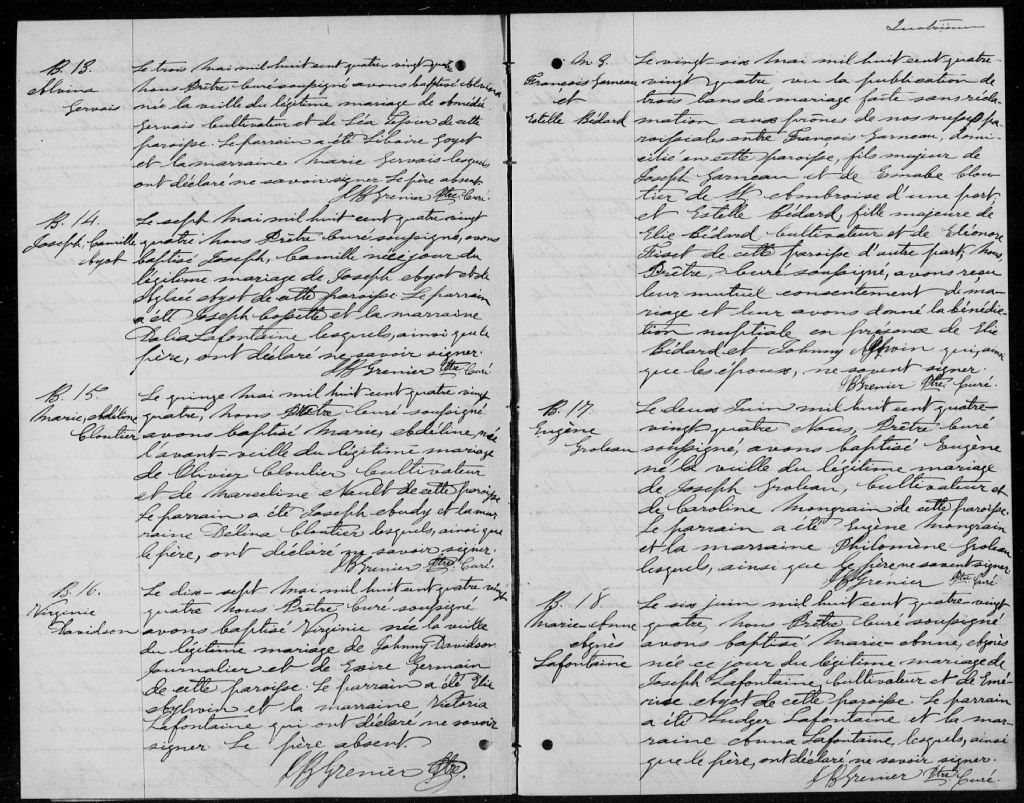 B. 13.
Alvina
Gervais
Le trois Mai mil huit cent quatre vingt quatre
nous Prêtre Curé soussigné avons baptisé Alvina
née la veille du légitime mariage de Amédé
Gervais Cultivateur et de Léa Tessier de cette
paroisse. Le parrain a été Liboire Goyet
et la marraine Marie Gervais lesquels
ont déclaré ne savoir signer. Le père absent.
J B Grenier Ptre Curé.
B. 14.
Joseph, Camille
Ayot
Le sept Mai mil huit cent quatre vingt
quatre Nous Prêtre Curé soussigné, avons
baptisé Joseph, Camille né ce jour du
légitime mariage de Joseph Ayot et de
Aglaé Ayot de cette paroisse. Le parrain
a été Joseph Cossette et la marraine
Dalia Lafontaine lesquels, ainsi que le
père, ont déclaré ne savoir signer.
J B Grenier Ptre Curé.
B. 15.
Marie, Adéline
Cloutier
Le quinze Mai mil huit cent quatre vingt
quatre, Nous Prêtre Curé soussigné
avons baptisé Marie, Adéline, née
l'avant-veille du légitime mariage
de Olivier Cloutier Cultivateur
et de Marceline Nault de cette paroisse
Le parrain a été Joseph Audy et la mar
raine Délina Cloutier lesquels, ainsi que
le père, ont déclaré ne savoir signer.
J B Grenier Ptre Curé.
B. 16.
Virginie
Davidson
Le dix-sept Mai mil huit cent quatre vingt
quatre Nous Prêtre Curé soussigné
avons baptisé Virginie née la veille
du légitime mariage de Johnny Davidson
Journalier et de Germain
de cette paroisse. Le parrain a été Elie
Aylwin et la marraine Victoria
Lafontaine qui ont déclaré ne savoir
signer. Le père absent.
J B Grenier Ptre.
Quatrième
M 3.
François Garneau
et
Estelle Bédard
Le vingt six Mai mil huit cent quatre-
vingt quatre vu la publication de
trois bans de mariage faite sans récla
mation aux prônes de nos messes pa
roissiales entre François Garneau, domi
cilié en cette paroisse, fils majeur de
Joseph Garneau et de Clou
tier de St Ambroise d'une part,
et Estelle Bédard fille majeure de
Elie Bédard Cultivateur et de Eléonore
Fiset de cette paroisse d'autre part, Nous,
Prêtre, Curé soussigné, avons reçu
leur mutuel consentement de ma
riage et leur avons donné la bénédic
tion nuptiale en présence de Elie
Bédard et Johnny Aylwin qui, ainsi
que les époux, ne savent signer.
J B Grenier Ptre Curé.
B 17.
Eugène
Groleau
Le deux Juin mil huit cent quatre-
vingt quatre Nous, Prêtre Curé
soussigné, avons baptisé Eugène
né la veille du légitime mariage
de Joseph Groleau, Cultivateur et
de Caroline Mongrain de cette paroisse.
Le parrain a été Eugène Mongrain
et la marraine Philomène Groleau
lesquels, ainsi que le père ne savent signer
J B Grenier Ptre Curé
B. 18.
Marie Anne
Agnès
Lafontaine
Le six juin mil huit cent quatre-vingt
quatre, Nous Prêtre Curé soussigné
avons baptisé Marie Anne, Agnès
née ce jour du légitime mariage de
Joseph Lafontaine, Cultivateur et de Emé
rise Ayot de cette paroisse. Le parrain
a été Ludger Lafontaine et la mar
raine Anna Lafontaine, lesquels, ainsi
que le père, ont déclaré ne savoir signer.
J B Grenier Ptre Curé.